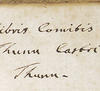 libris Comitis
Thunn Castri
Thunn-